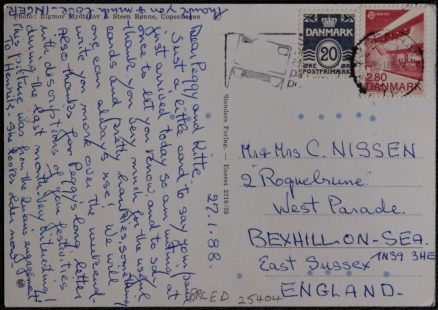 Photo: Rigmor Mydtskov & Steen Rønne, Copenhagen
Thank you & much love INGER
Dear Peggy and Kitte
Just a little card to say your parcel
just arrived today so am writing at
once to let you know and to say
thank you very much for the useful
cards and pretty hankies something
one can always use! We will
write you more over the weekend
Also thanks for Peggy's long letter
with descriptions of you festivities
during the last month. Very interesting!
This picture was from the Queens engagement
To Henrik. She looks older now.
27.1.88.
Standers Forlag. – Eneret 2316/35
DANMARK
20
ØRE ØRE
POSTFRIMÆRKE
2.80
DANMARK
Mr & Mrs C. NISSEN
2 "Roquebrune"
West Parade.
BEXHILL-ON-SEA.
East Sussex TN39 3HE
ENGLAND.
25404